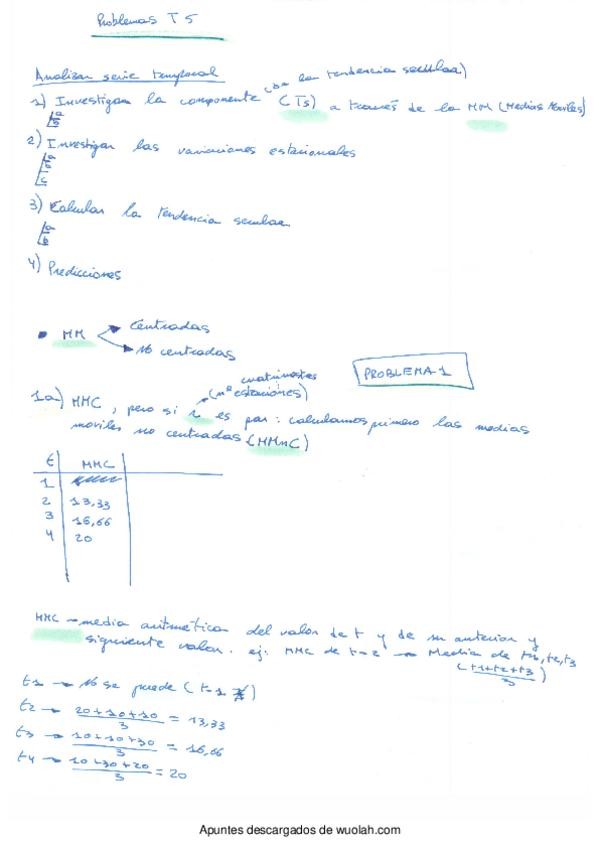 Problemas T 5
Analizar serie temporal
(la tendencia secular)
1) Investigar la componente (Ts) a través de la MM (Medias Moviles)
a
b
2) Investigar las variaciones estacionales
a
b
c
3) Calcular la tendencia secular
a
b
4) Predicciones
• MM → Centradas
→ No centradas
PROBLEMA 1
cuatrimestres
(nº estaciones)
1a) MMC, pero si r es par: calculamos primero las medias
moviles no centradas (MMnC)
t MMC
1
2 13,33
3 16,66
4 20
MMC → media aritmética del valor de t y de su anterior y
siguiente valor. ej: MMC de t=2 → Media de t1, t2, t3
(t1+t2+t3)
3
t1 → No se puede (t-1 ∄)
t2 → 20+10+10 / 3 = 13,33
t3 → 10+10+30 / 3 = 16,66
t4 → 10+30+20 / 3 = 20
Apuntes descargados de wuolah.com